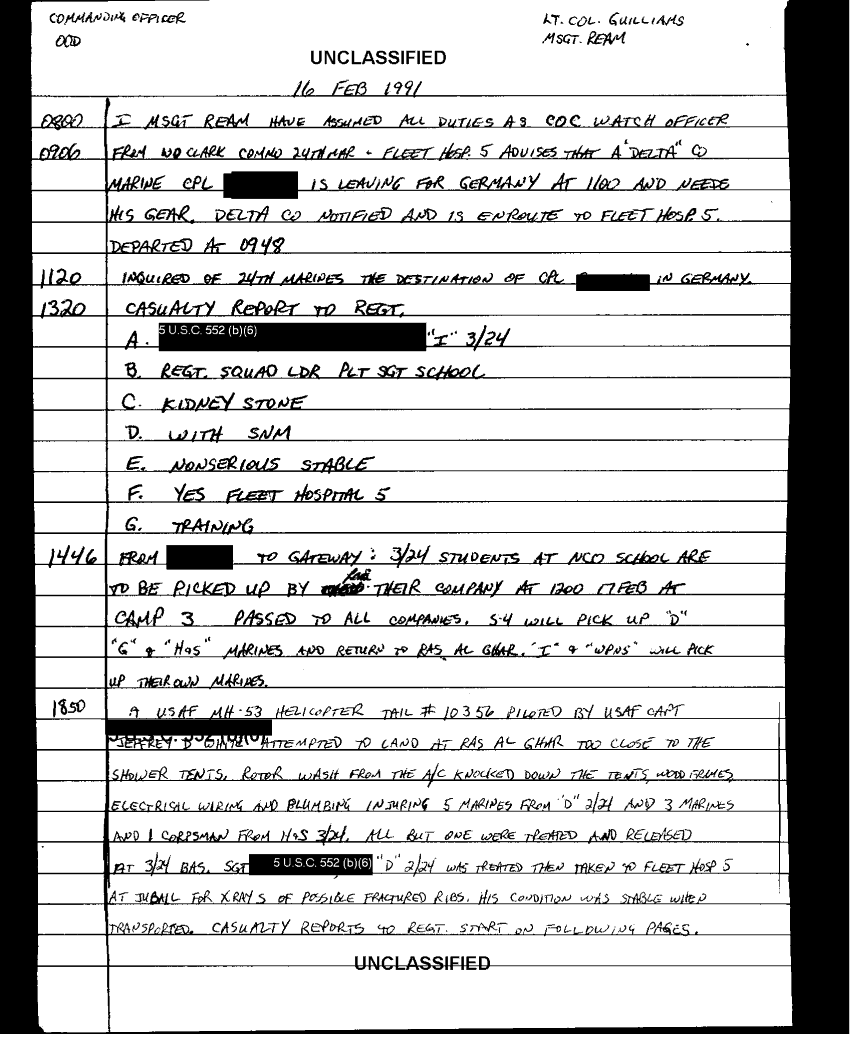 COMMANDING OFFICER LT. COL. GUILLIAMS
OOD MSGT. REAM
UNCLASSIFIED
16 FEB 1991
0800 I MSGT REAM HAVE ASSUMED ALL DUTIES AS COC WATCH OFFICER
0906 FROM WO CLARK COMMO 24TH MAR - FLEET HOSP. 5 ADVISES THAT A "DELTA" CO
MARINE CPL IS LEAVING FOR GERMANY AT 1100 AND NEEDS
HIS GEAR. DELTA CO NOTIFIED AND IS ENROUTE TO FLEET HOSP 5.
DEPARTED AT 0948
1120 INQUIRED OF 24TH MARINES THE DESTINATION OF CPL IN GERMANY.
1320 CASUALTY REPORT TO REGT.
A. 5 U.S.C. 552 (b)(6) "I" 3/24
B. REGT. SQUAD LDR PLT SGT SCHOOL
C. KIDNEY STONE
D. WITH SNM
E. NONSERIOUS STABLE
F. YES FLEET HOSPITAL 5
G. TRAINING
1446 FROM TO GATEWAY: 3/24 STUDENTS AT NCO SCHOOL ARE
TO BE PICKED UP BY THEIR COMPANY AT 1200 17 FEB AT
CAMP 3 PASSED TO ALL COMPANIES. S-4 WILL PICK UP "D"
"G" & "H&S" MARINES AND RETURN TO RAS AL GHAR. "I" & "WPNS" WILL PICK
UP THEIR OWN MARINES.
1850 A USAF MH-53 HELICOPTER TAIL # 10356 PILOTED BY USAF CAPT
ATTEMPTED TO LAND AT RAS AL GHAR TOO CLOSE TO THE
SHOWER TENTS. ROTOR WASH FROM THE A/C KNOCKED DOWN THE TENTS, WOOD FRAMES,
ELECTRISAL WIRING AND PLUMBING INJURING 5 MARINES FROM "D" 2/24 AND 3 MARINES
AND 1 CORPSMAN FROM H&S 3/24. ALL BUT ONE WERE TREATED AND RELEASED
AT 3/24 BAS. SGT 5 U.S.C. 552 (b)(6) "D" 2/24 WAS TREATED THEN TAKEN TO FLEET HOSP 5
AT JUBAIL FOR XRAYS OF POSSIBLE FRACTURED RIBS. HIS CONDITION WAS STABLE WHEN
TRANSPORTED. CASUALTY REPORTS TO REGT. START ON FOLLOWING PAGES.
UNCLASSIFIED